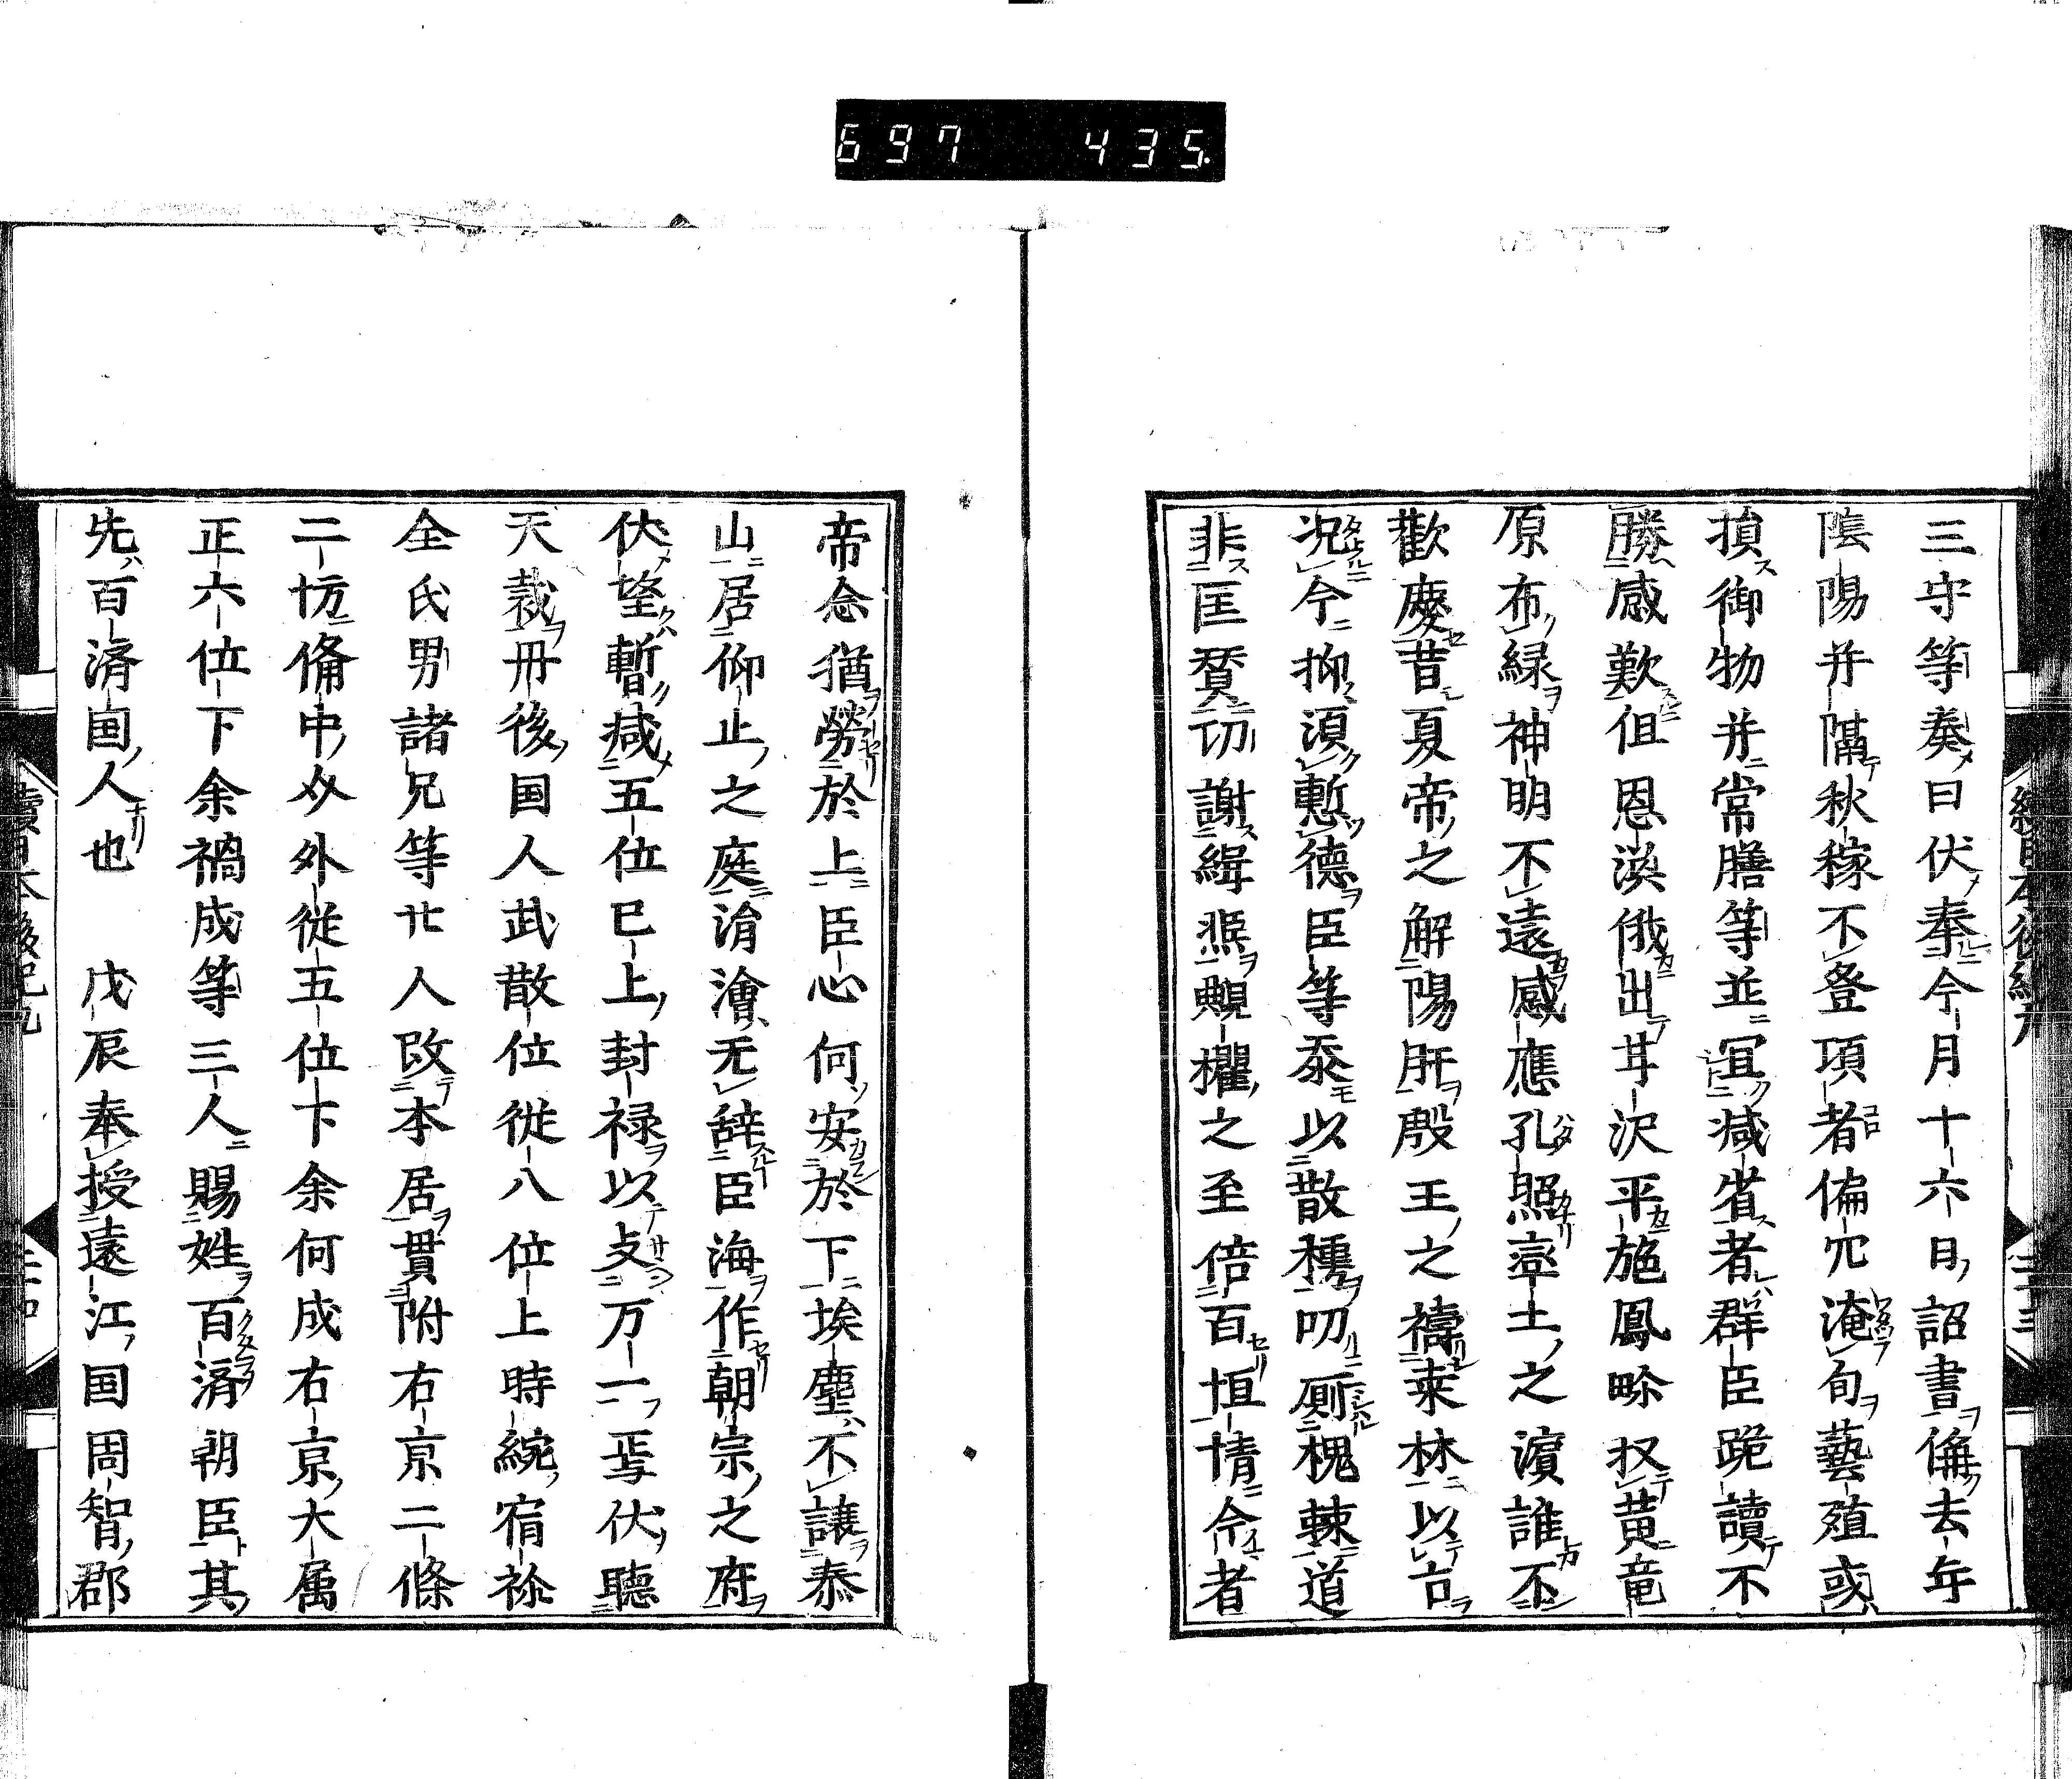 697 435.
三守等奏曰伏奉今月十六日詔書偁去年
陰陽并隔秋稼不登項者偏亢淹旬藝殖或
損御物并常膳等並冝減省者群臣跪讀不
勝感歎但恩渙俄出茸沢平施鳳畧扠黄竜
原布緑神明不遠感應孔照率土之濵誰不
歡慶昔夏帝之解陽肝殷王之禱菜林以言
况今抑湏慙德臣等忝以散種叨厠槐棘道
非匡賛切謝緝熈䩄懼之至倍百恒情今者
帝念猶勞於上臣心何安於下埃塵不讓泰
山居仰止之庭渧澮无辞臣海作朝宗之府
伏望暫減五位已上封禄以攴万一焉伏聽
天裁丹後国人武散位従八位上時綩宿祢
全氏男諸兄等廿人改本居貫附右京二條
二坊備中爻外従五位下余何成右京大属
正六位下余禍成等三人賜姓百済朝臣其
先百済国人也　戊辰奉授遠江国周智郡